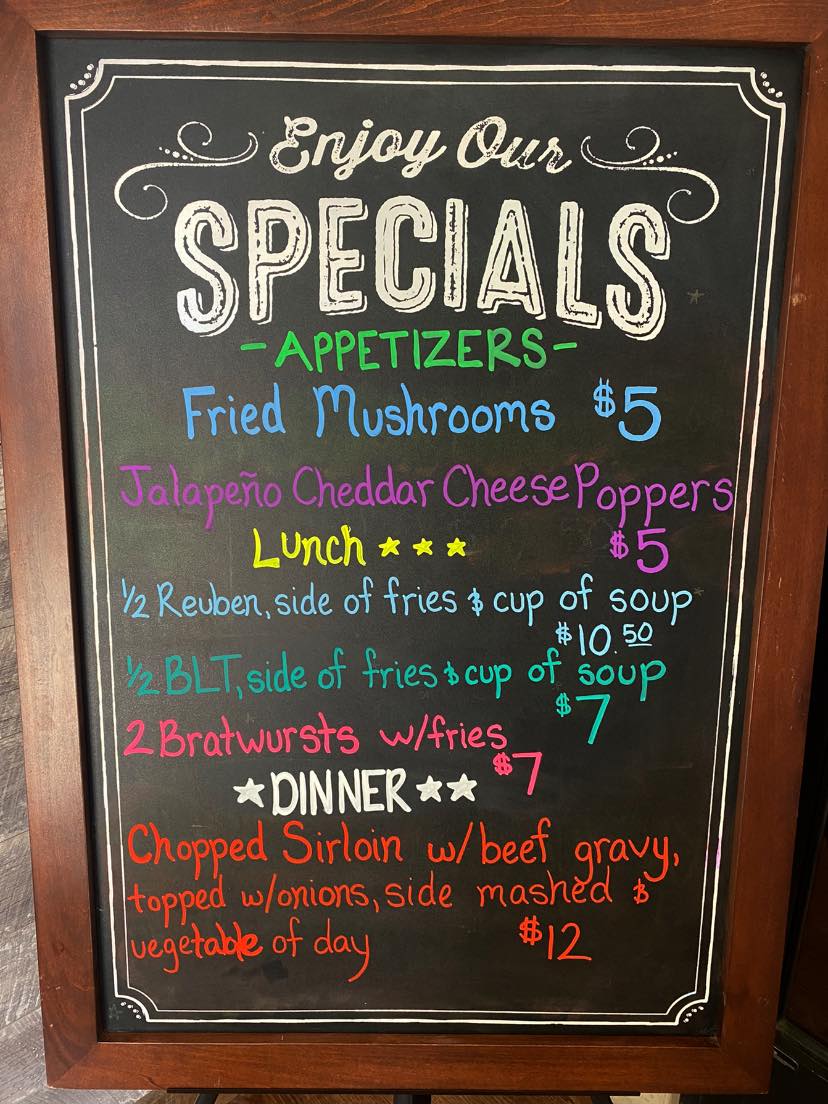 Enjoy Our
SPECIALS
-APPETIZERS-
Fried Mushrooms $5
Jalapeño Cheddar Cheese Poppers
Lunch ★ ★ ★ $5
1/2 Reuben, side of fries & cup of soup
$10.50
1/2 BLT, side of fries & cup of soup
$7
2 Bratwursts w/fries
$7
★DINNER★★
Chopped Sirloin w/beef gravy,
topped w/onions, side mashed &
vegetable of day $12